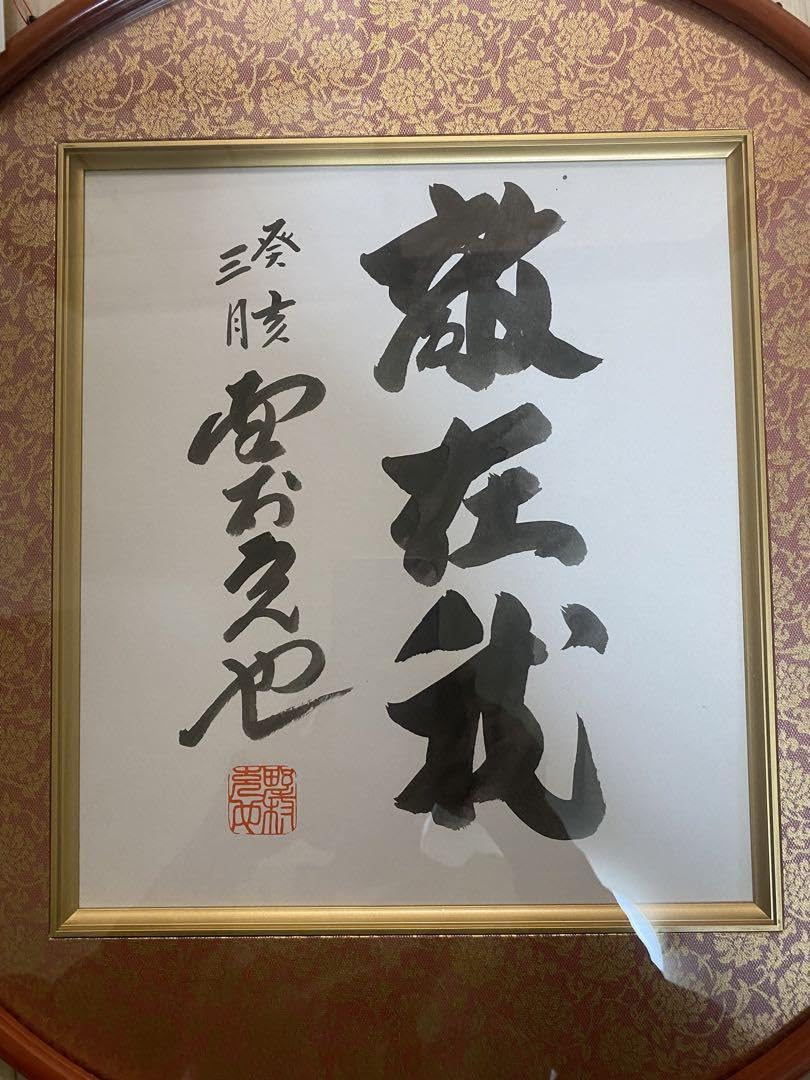 敵在我
癸亥
三月
野村克也
野村
克也